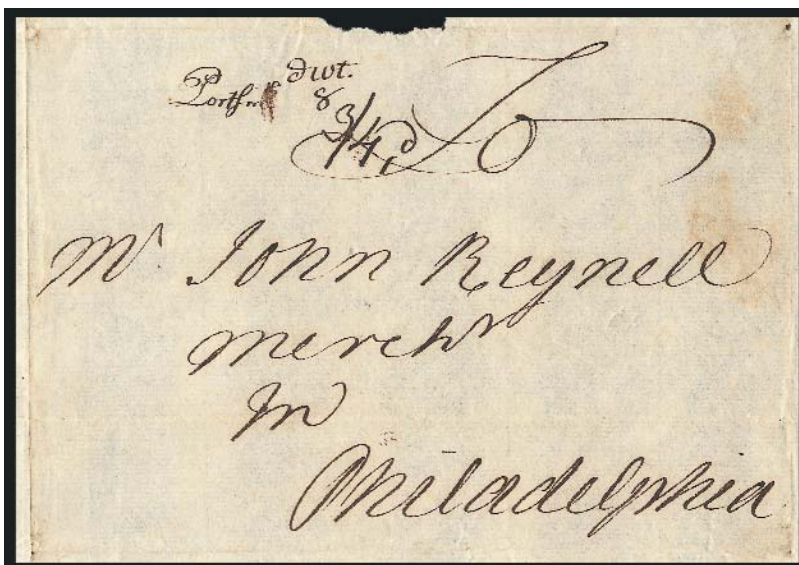 dwt.
8
3/4d To
Mr. John Reynell
Mercht
In
Philadelphia